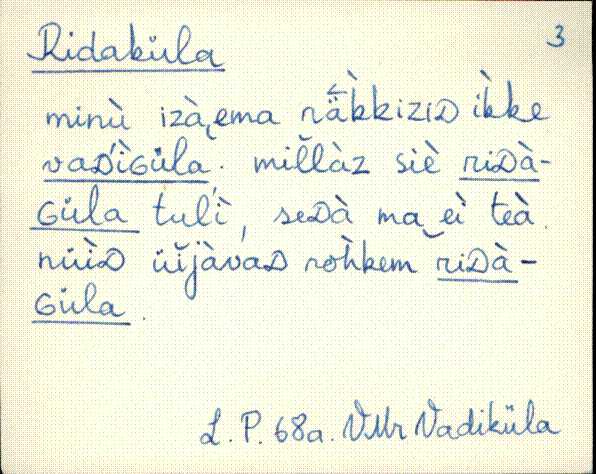 Ridaküla
3
minù izà‿ema räkkiziD ìkke
vaD́ìGüla. mil̆làz siè riDà-
Güla tuĺì, seDà ma‿eì teà.
nüìD üĭjàvaD rohkem riDà-
Güla.
L. P. 68a. VMr Vadiküla